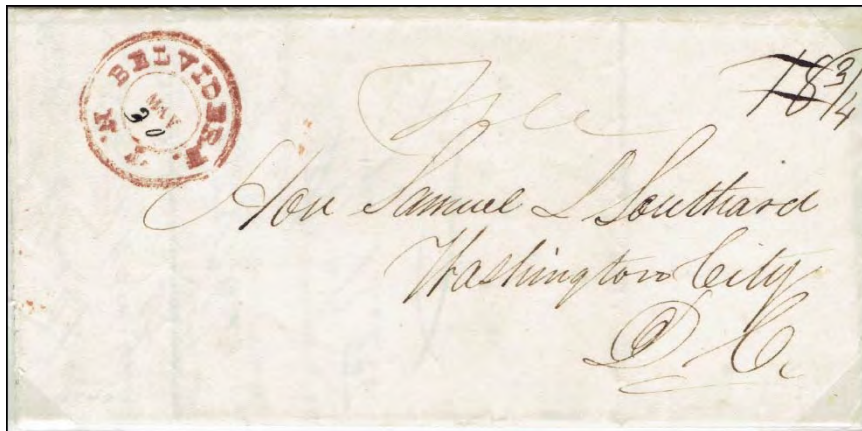 BELVIDERE. N.J.
MAY
30
Free
18 3/4
Hon Samuel L Southard
Washington City
D. C.